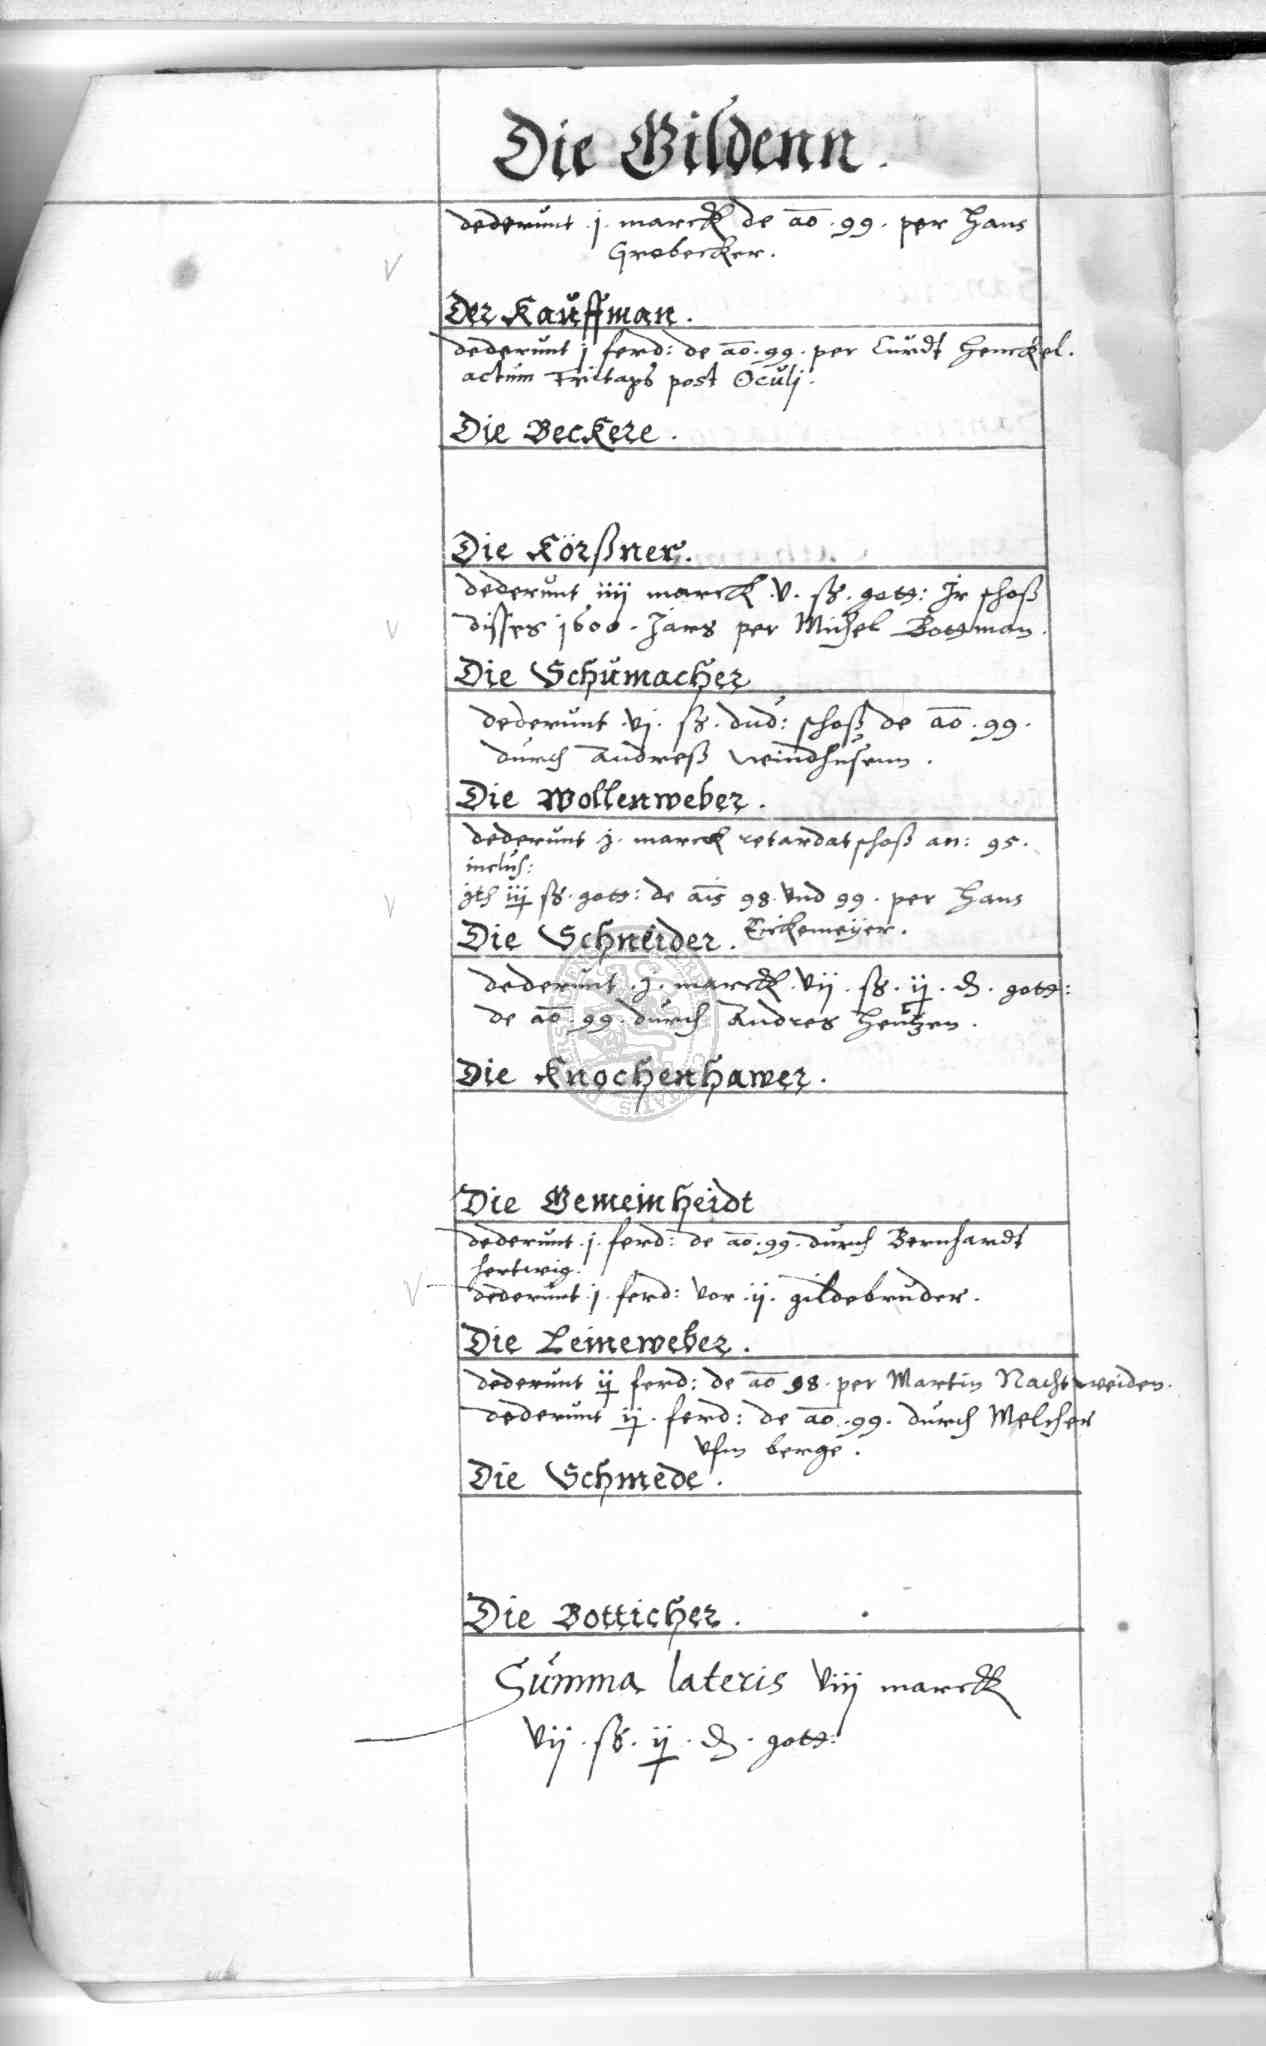 Die Gildenn.
dederunt .j. marck de ao. 99. per Hans
Grobecker.
Der Kauffman.
dederunt j ferd: de ao. 99. per Curdt Henckel.
actum post Oculj.
Die Beckere.
Die Körßner.
dederunt iiij marck .v. ß. gott: Jr schoß
disses 1600. Jars per Michel Bottman.
Die Schumacher
dederunt .vj. ß. dud: schoß de ao. 99.
durch Andreß Windhusenn.
Die Wollenweber.
dederunt .j. marck retardat schoß an: 95.
inclus:
iij ß. gott: de ais 98. vnd 99. per Hans
Die Schneider. Eickemeyer.
dederunt .j. marck. vij. ß. ij. d. gott:
de ao. 99. durch Andres Heutzen.
Die Knochenhawer.
Die Gemeinheidt
dederunt .j. ferd: de ao. 99. durch Bernhardt
Hertwig.
dederunt .j. ferd: vor .ij. gildebruder.
Die Leineweber.
dederunt ij ferd: de ao 98. per Martin Nachtweiden.
dederunt ij. ferd: de ao. 99. durch Melcher
vfm berge.
Die Schmede.
Die Botticher.
Summa lateris viij marck
vij. ß. ij. d. gott: